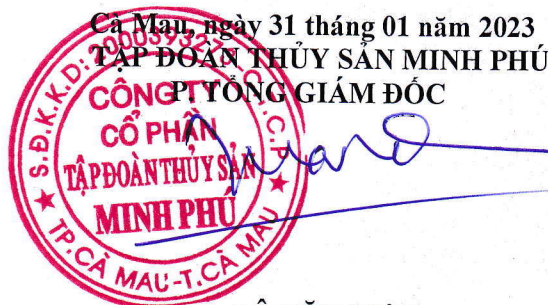 Cà Mau, ngày 31 tháng 01 năm 2023
TẬP ĐOÀN THỦY SẢN MINH PHÚ
P. TỔNG GIÁM ĐỐC
CÔNG TY
CỔ PHẦN
TẬP ĐOÀN THỦY SẢN
MINH PHÚ
S.Đ.K.K.D: C.T.C.P
TP. CÀ MAU-T. CÀ MAU